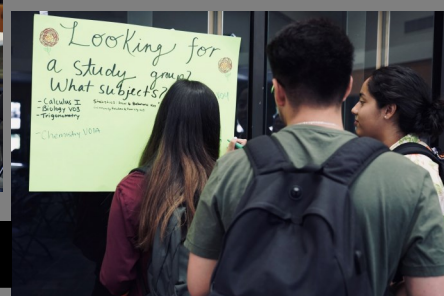 Looking for
a study group?
What subjects?
- Calculus I
- Biology V03
- Trigonometry
- Chemistry V01A